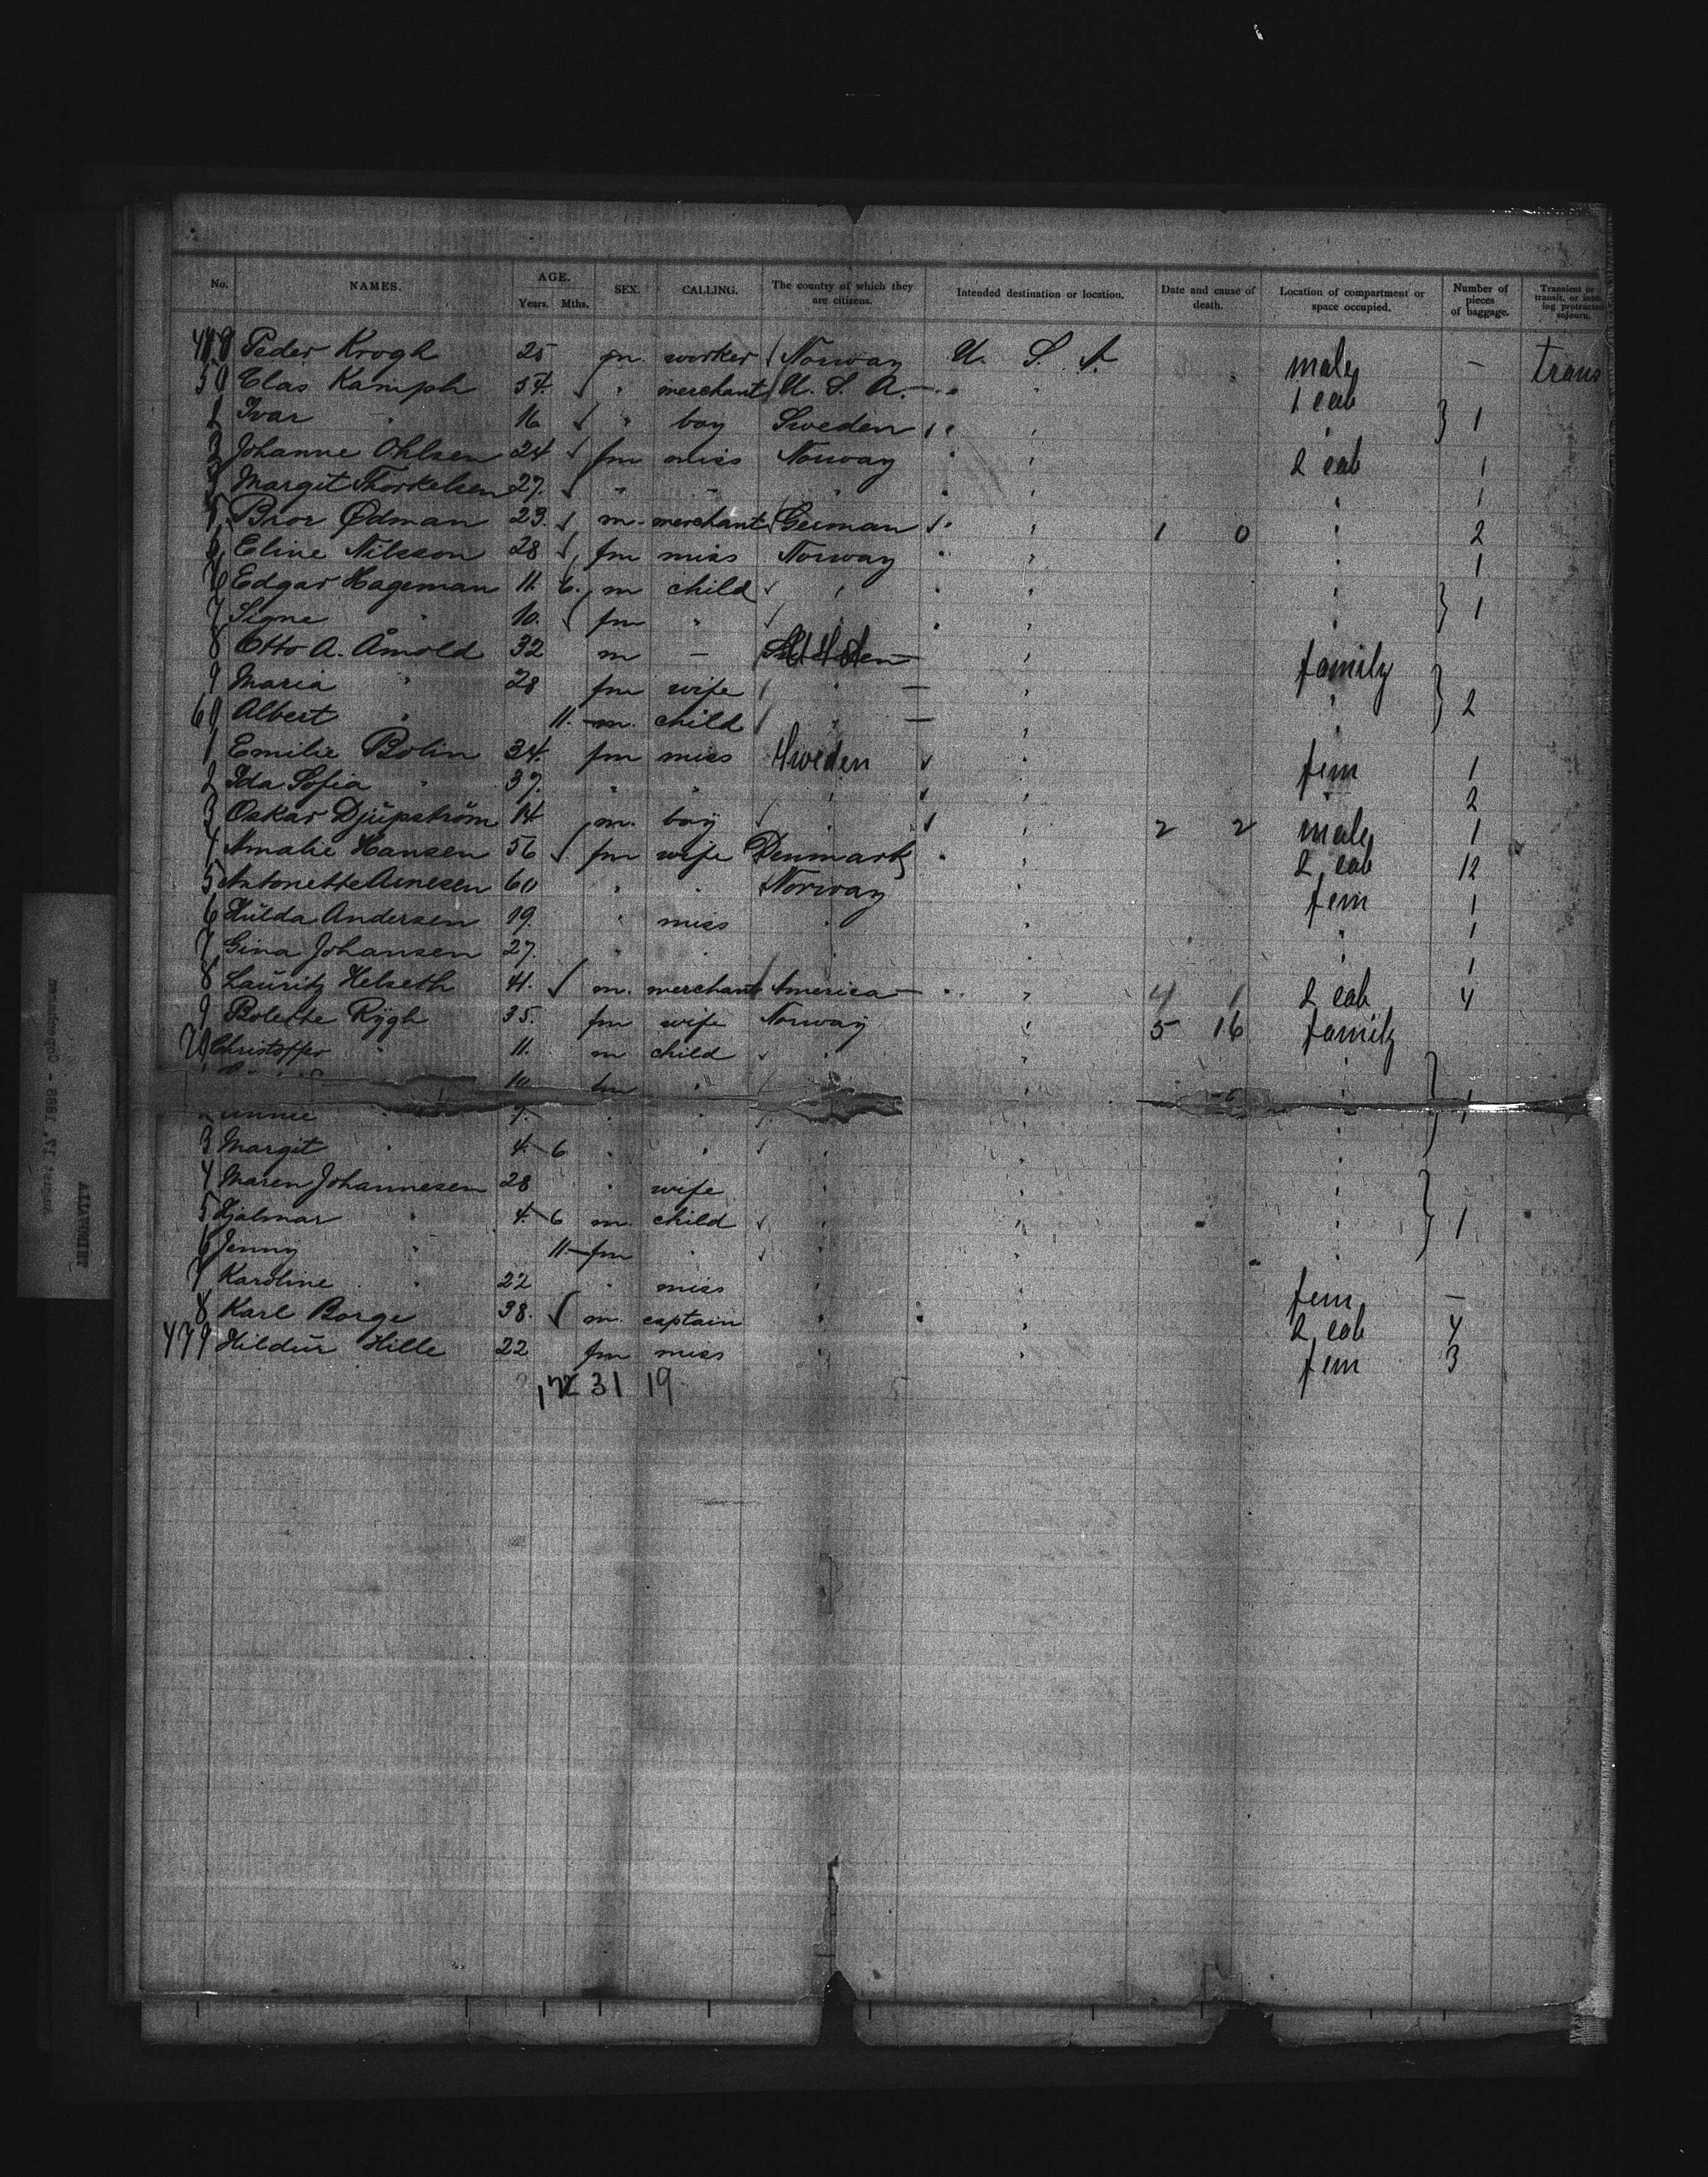 No. NAMES. AGE. Years. Mths. SEX. CALLING. The country of which they are citizens. Intended destination or location. Date and cause of death. Location of compartment or space occupied. Number of pieces of baggage. Transient or
Peder Krogh 25 m. worker Norway U. S. A. male — trans
50 Clas Kamph 54. " merchant U. S. A. — " " 1 cab
Ivar " 16 " boy Sweden " " " 1
Johanne Ohlsen 24 fm miss Norway " " 2 cab 1
Margit Thorkelsen 27. " " " " " " 1
Bror Ødman 23. m. merchant German " " 1 0 " 2
Eline Nilsson 28 fm miss Norway " " " 1
6 Edgar Hageman 11. 6. m child " " " " 1
7 Signe " 10. fm " " " " "
8 Otto A. Arnold 32 m — " family
9 Maria " 28 fm wife " — " " 2
60 Albert " 11. m. child " — " "
1 Emilie Bolin 34. fm miss Sweden " fem 1
2 Ida Sofia " 37. " " " " " 2
3 Oskar Djupström 14 m. boy " " 2 2 male 1
4 Amalie Hansen 56 fm wife Denmark " " 2 cab 12
5 Antonette Arnesen 60 " " Norway " fem 1
6 Hulda Andersen 19. " miss " " " 1
7 Gina Johansen 27. " " " " " 1
8 Lauritz Helseth 41. m. merchant America — " " 4 1 2 cab 4
9 Bolette Rygh 35. fm wife Norway " 5 16 family
70 Christoffer " 11. m child " " "
10 fm " " "
" 7. " " " " 1
3 Margit " 4. 6 " " " " "
4 Maren Johannesen 28 " wife " " "
5 Hjalmar " 4. 6 m. child " " " 1
6 Jenny " 11. fm " " " "
7 Karoline " 22 " miss " fem —
8 Karl Borge 38. m. captain " " " 2 cab 4
479 Hildur Hille 22 fm miss " " fem 3
31 19